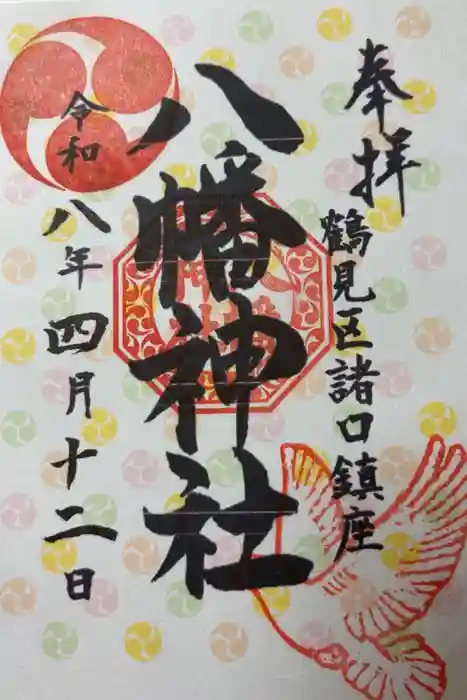 奉拝
鶴見区諸口鎮座
八幡神社
令和
八年四月十二日